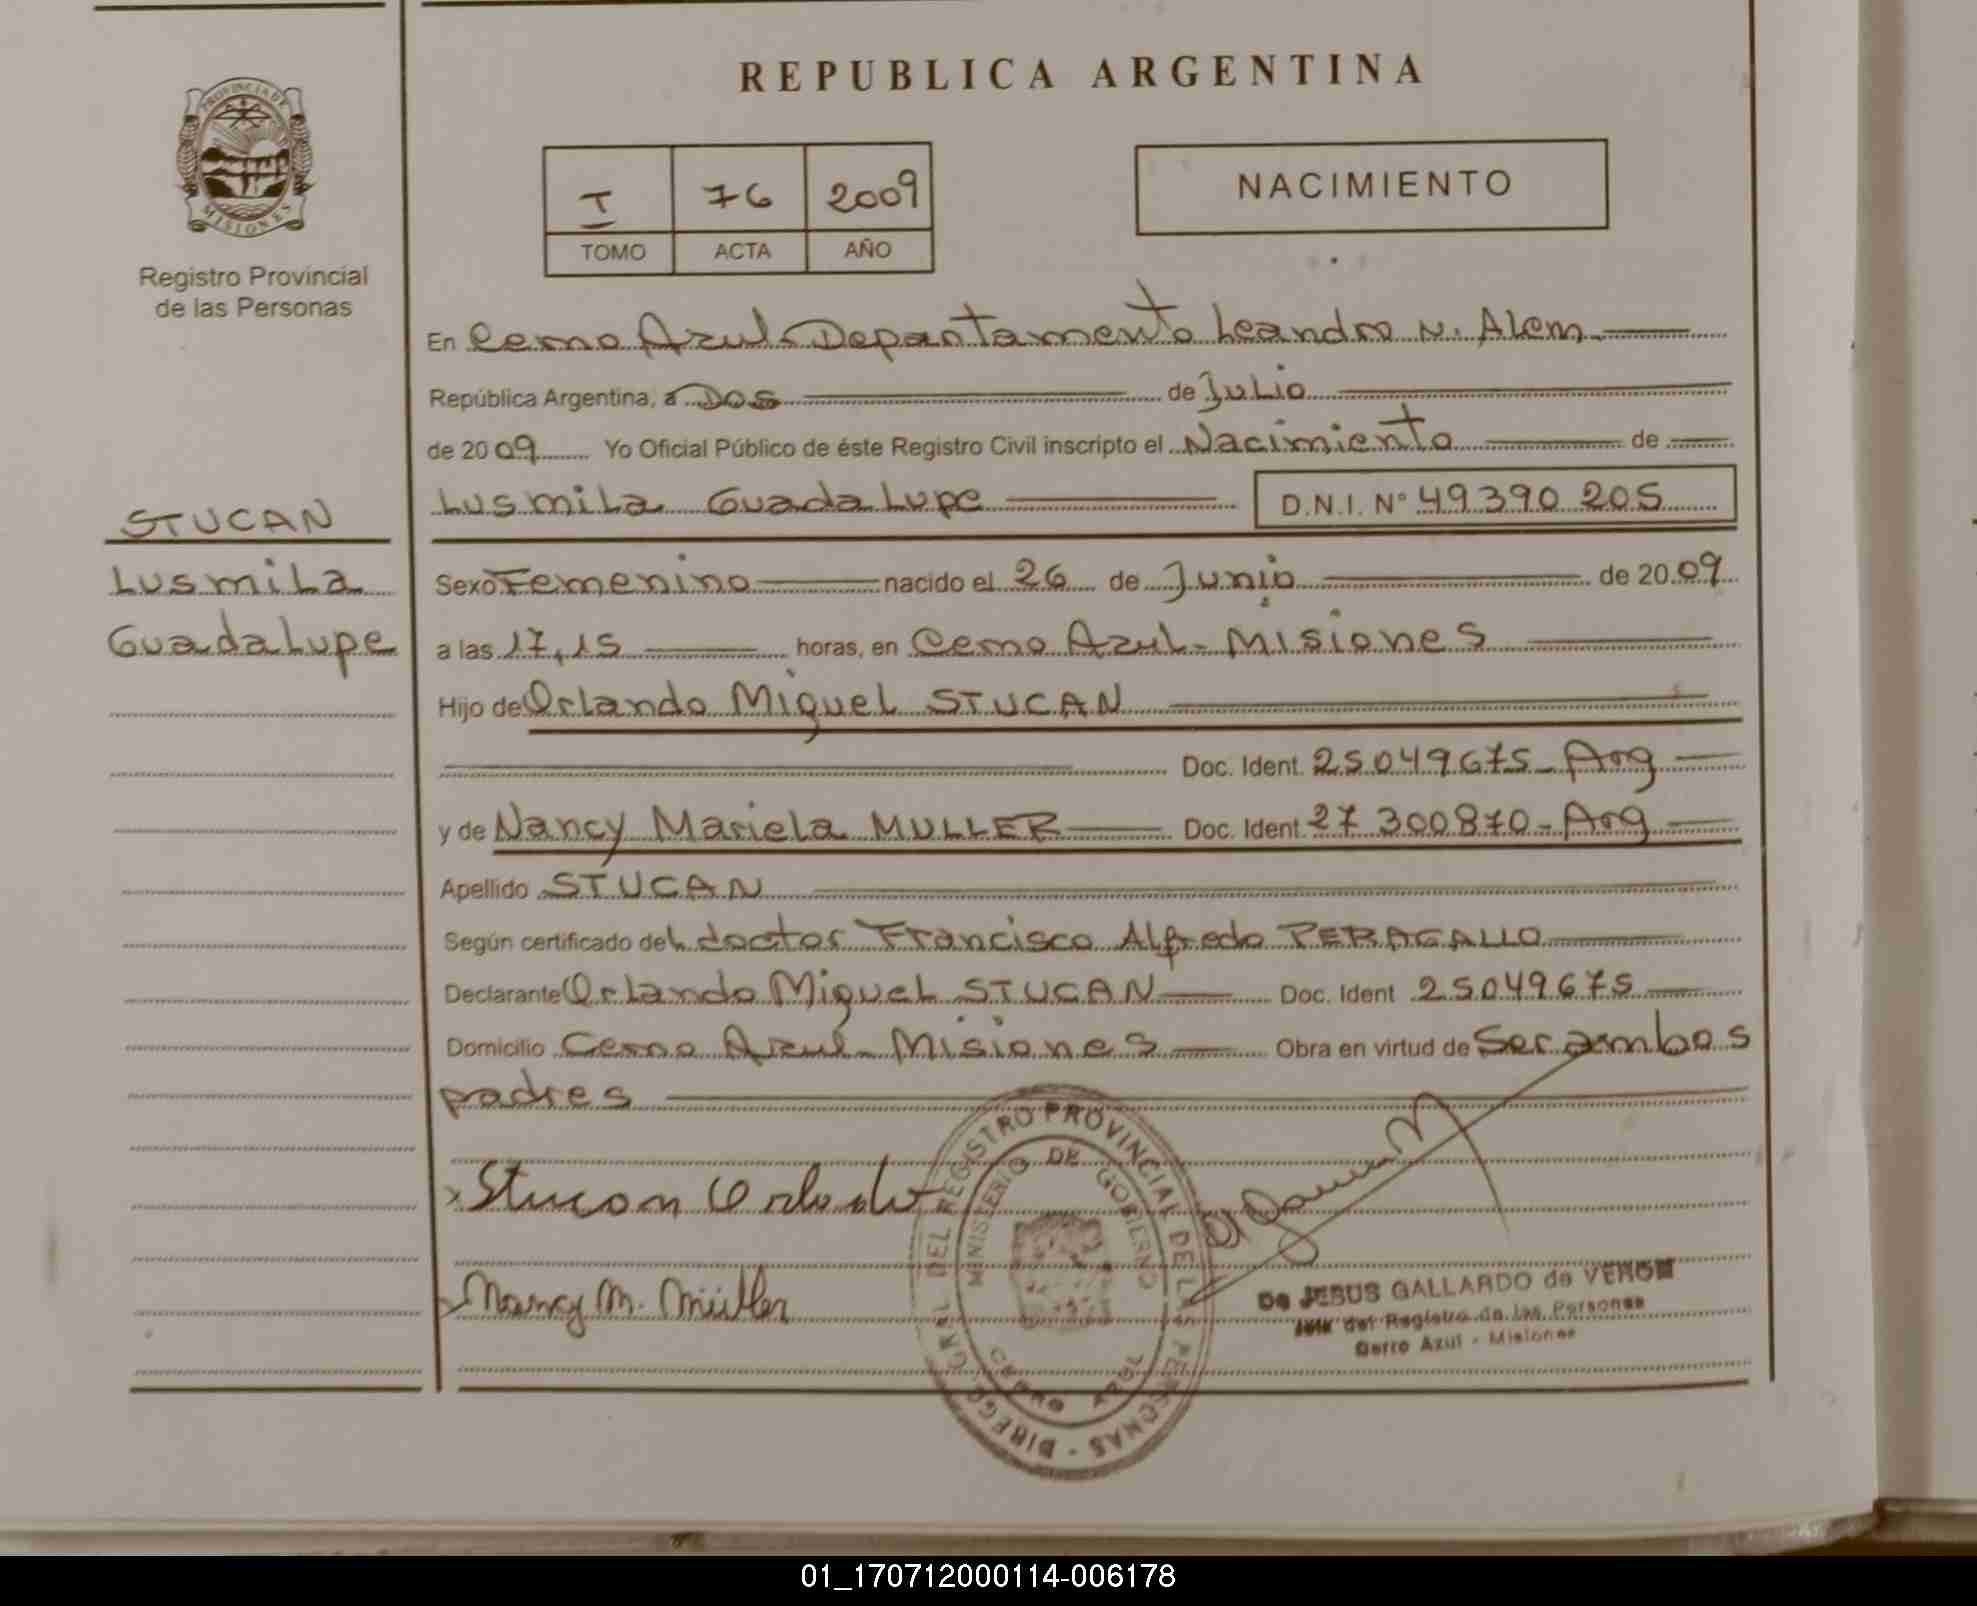 REPUBLICA ARGENTINA
PROVINCIA DE
MISIONES
Registro Provincial
de las Personas
I 76 2009
TOMO ACTA AÑO
NACIMIENTO
En Cerro Azul-Departamento Leandro N. Alem
República Argentina, a Dos de Julio
de 2009 Yo Oficial Público de éste Registro Civil inscripto el Nacimiento de
Lusmila Guadalupe D.N.I. N° 49390 205
STUCAN
Lusmila
Guadalupe
Sexo Femenino nacido el 26 de Junio de 2009
a las 17,15 horas, en Cerro Azul-Misiones
Hijo de Orlando Miguel STUCAN
Doc. Ident. 25049675-Arg
y de Nancy Mariela MULLER Doc. Ident. 27 300870-Arg
Apellido STUCAN
Según certificado del doctor Francisco Alfredo PERAGALLO
Declarante Orlando Miguel STUCAN Doc. Ident 25049675
Domicilio Cerro Azul-Misiones Obra en virtud de Ser ambos
padres
Stucan Orlando
Nancy M. Müller
DIRECC. GRAL DEL REGISTRO PROVINCIAL DE LAS PERSONAS
MINISTERIO DE GOBIERNO
CERRO AZUL
De JESUS GALLARDO de VERON
Jefe del Registro de las Personas
Cerro Azul - Misiones
01_170712000114-006178